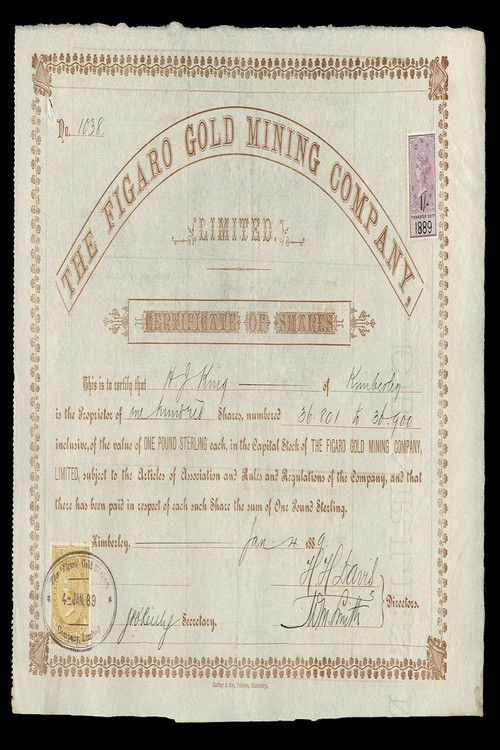 No. 1038.
THE FIGARO GOLD MINING COMPANY,
LIMITED.
1/-
TRANSFER DUTY
1889
CERTIFICATE OF SHARES
This is to certify that H J King of Kimberley
is the Proprietor of one hundred Shares, numbered 36.801 to 36.900
inclusive, of the value of ONE POUND STERLING each, in the Capital Stock of THE FIGARO GOLD MINING COMPANY,
LIMITED, subject to the Articles of Association and Rules and Regulations of the Company, and that
there has been paid in respect of each such Share the sum of One Pound Sterling.
Kimberley, Jan 4 1889.
The Figaro Gold Mining
4-JAN.89
Company, Limited
H H Davis
W M Smith
Directors.
Secretary.